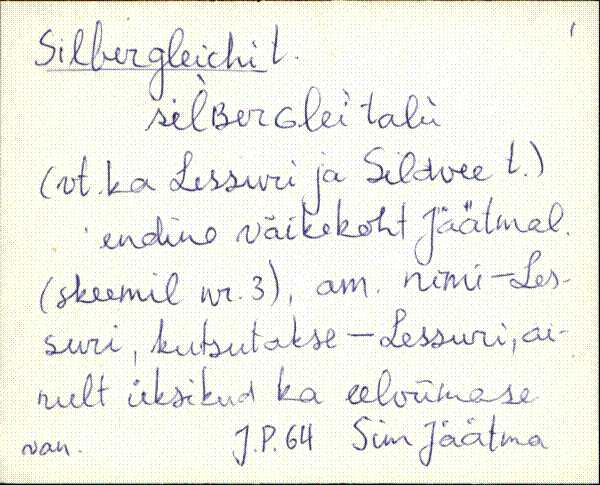 Silbergleichi t.
silBerGlei talu
(vt. ka Lessuri ja Sildvee t.)
endine väikekoht Jäätmal.
(skeemil nr. 3), am. nimi - Les-
suri, kutsutakse - Lessuri, ai-
nult üksikud ka eelviimase
van. J.P. 64 Sim Jäätma